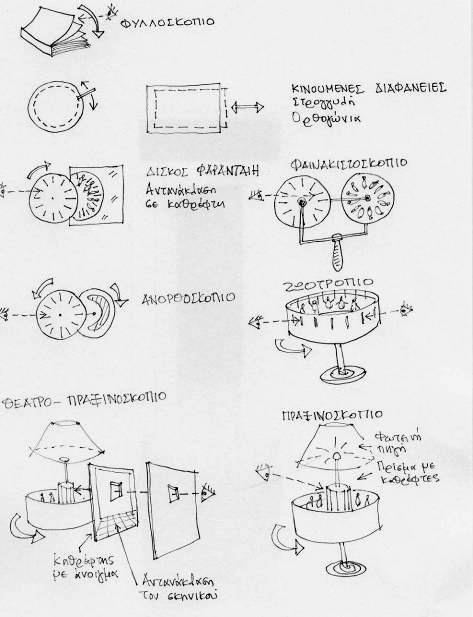 ΦΥΛΛΟΣΚΟΠΙΟ
ΚΙΝΟΥΜΕΝΕΣ ΔΙΑΦΑΝΕΙΕΣ
Στρογγυλή
Ορθογώνια
ΔΙΣΚΟΣ ΦΑΡΑΝΤΑΙΗ
Αντανάκλαση
σε καθρέφτη
ΦΑΙΝΑΚΙΣΤΟΣΚΟΠΙΟ
ΑΝΟΡΘΟΣΚΟΠΙΟ
ΖΩΟΤΡΟΠΙΟ
ΘΕΑΤΡΟ-ΠΡΑΞΙΝΟΣΚΟΠΙΟ
Κηθρέφτης
με άνοιγμα
Αντανάκλαση
του σκηνικού
ΠΡΑΞΙΝΟΣΚΟΠΙΟ
Φωτεινή
πηγή
Πρίσμα με
καθρέφτες